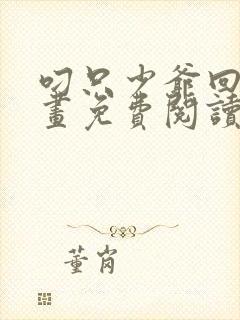 叼只少爺回
畫免費閱讀
董肖